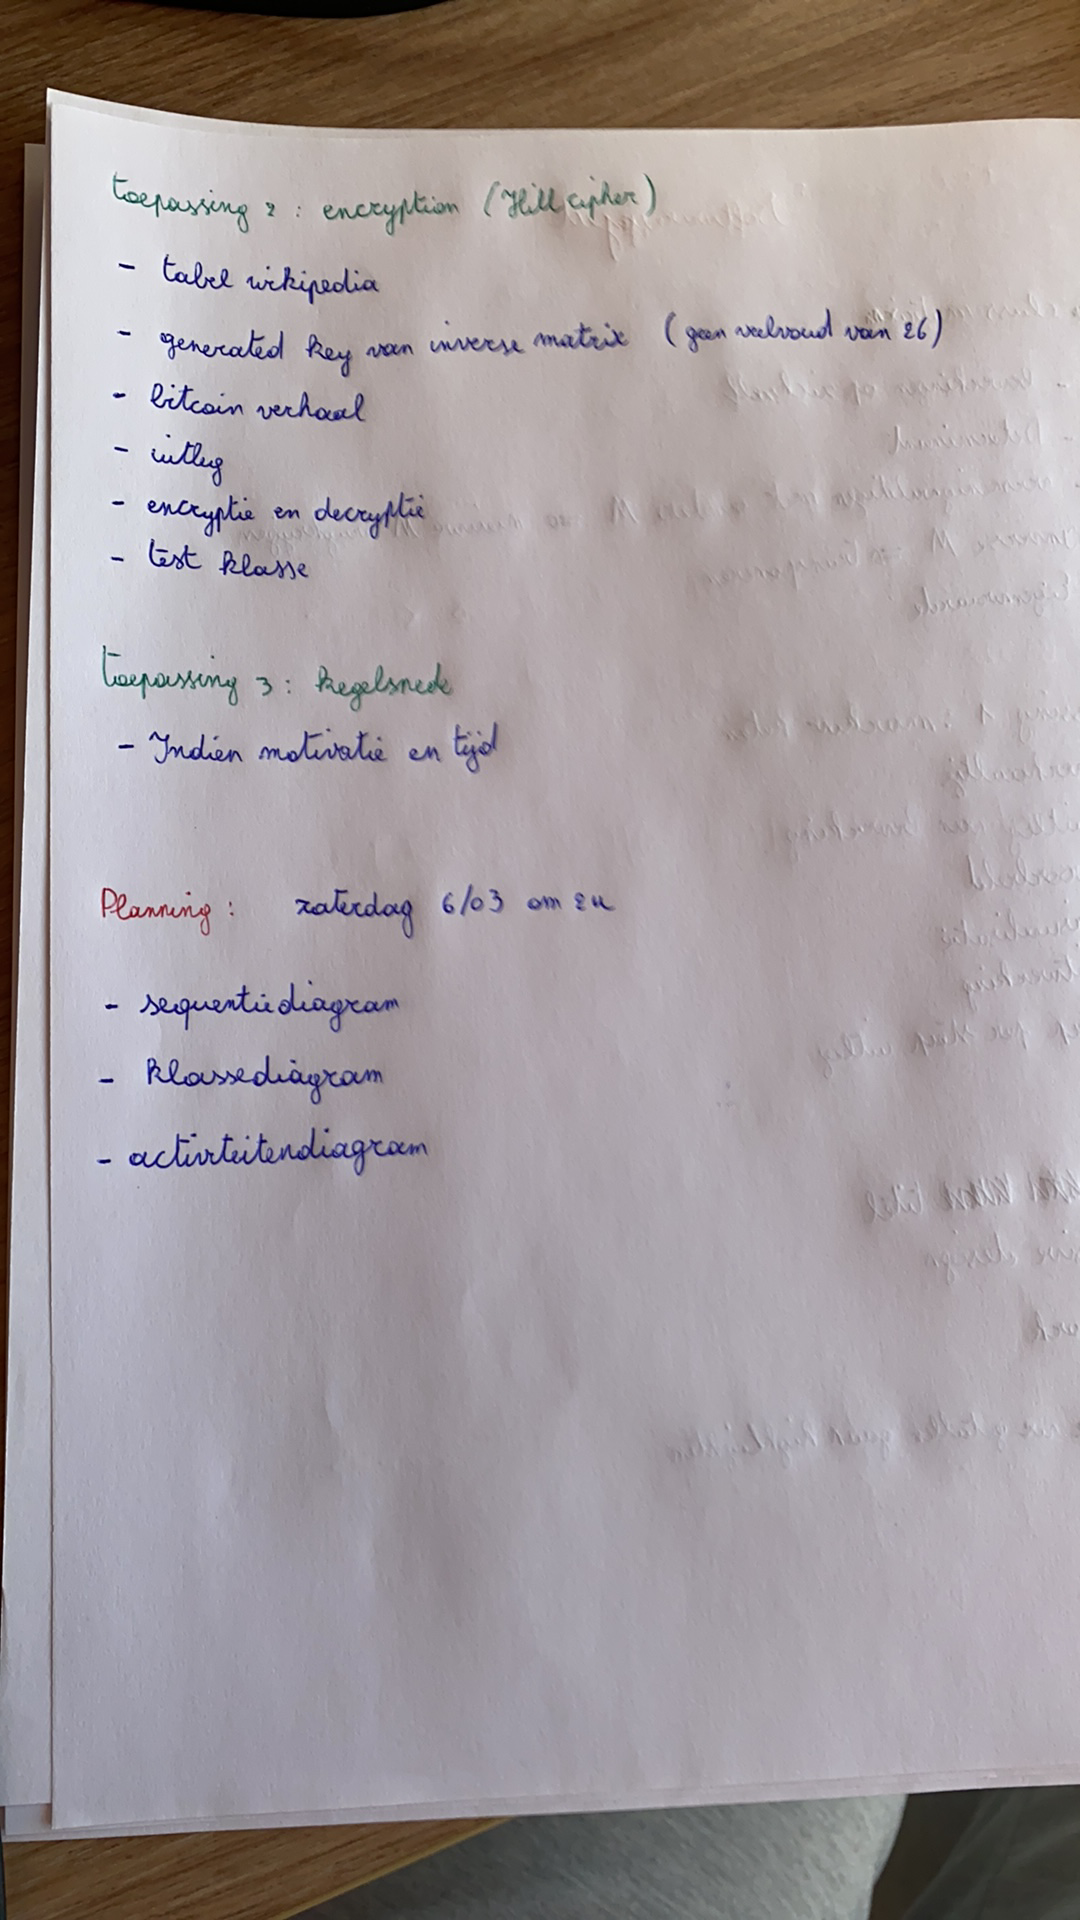 toepassing 2 : encryption (Hill cipher)
- tabel wikipedia
- generated key van inverse matrix (geen veelvoud van 26)
- bitcoin verhaal
- uitleg
- encryptie en decryptie
- test klasse
toepassing 3 : kegelsnede
- Indien motivatie en tijd
Planning : zaterdag 6/03 om 2u
- sequentiediagram
- klassediagram
- activiteitendiagram